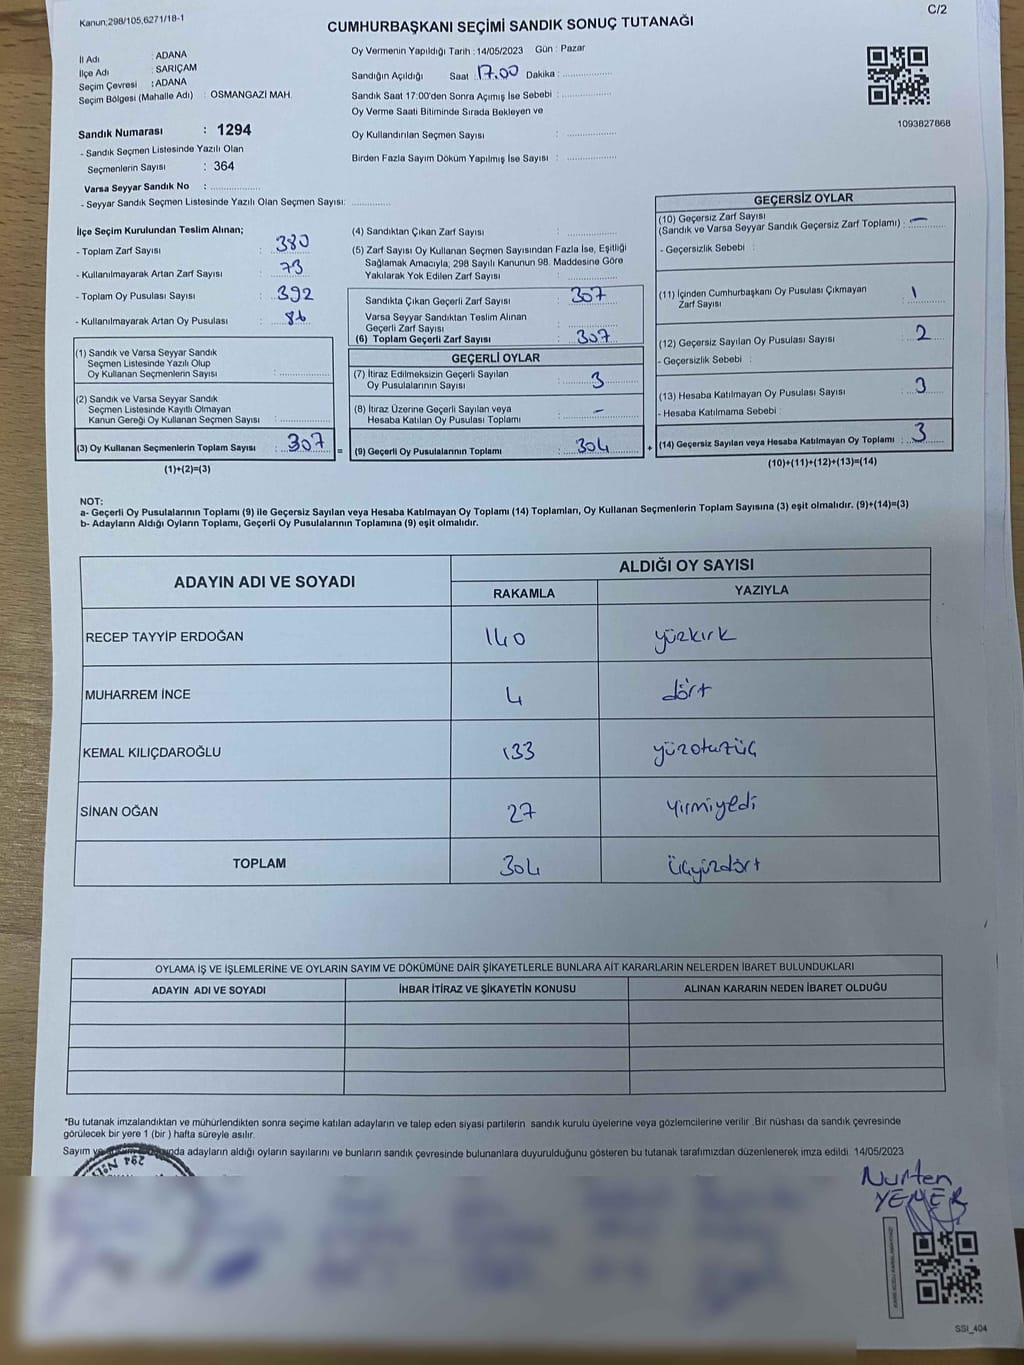 Kanun;298/105,6271/18-1
C/2
CUMHURBAŞKANI SEÇİMİ SANDIK SONUÇ TUTANAĞI
İl Adı : ADANA
İlçe Adı : SARIÇAM
Seçim Çevresi : ADANA
Seçim Bölgesi (Mahalle Adı) : OSMANGAZİ MAH.
Sandık Numarası : 1294
- Sandık Seçmen Listesinde Yazılı Olan
Seçmenlerin Sayısı : 364
Varsa Seyyar Sandık No :
- Seyyar Sandık Seçmen Listesinde Yazılı Olan Seçmen Sayısı:
Oy Vermenin Yapıldığı Tarih : 14/05/2023 Gün : Pazar
Sandığın Açıldığı Saat : 17.00 Dakika :
Sandık Saat 17:00'den Sonra Açımış İse Sebebi :
Oy Verme Saati Bitiminde Sırada Bekleyen ve
Oy Kullandırılan Seçmen Sayısı :
Birden Fazla Sayım Döküm Yapılmış İse Sayısı :
1093827868
İlçe Seçim Kurulundan Teslim Alınan;
- Toplam Zarf Sayısı : 380
- Kullanılmayarak Artan Zarf Sayısı : 73
- Toplam Oy Pusulası Sayısı : 392
- Kullanılmayarak Artan Oy Pusulası : 86
(1) Sandık ve Varsa Seyyar Sandık
Seçmen Listesinde Yazılı Olup
Oy Kullanan Seçmenlerin Sayısı :
(2) Sandık ve Varsa Seyyar Sandık
Seçmen Listesinde Kayıtlı Olmayan
Kanun Gereği Oy Kullanan Seçmen Sayısı :
(3) Oy Kullanan Seçmenlerin Toplam Sayısı : 307 =
(1)+(2)=(3)
(4) Sandıktan Çıkan Zarf Sayısı :
(5) Zarf Sayısı Oy Kullanan Seçmen Sayısından Fazla İse, Eşitliği
Sağlamak Amacıyla, 298 Sayılı Kanunun 98. Maddesine Göre
Yakılarak Yok Edilen Zarf Sayısı :
Sandıkta Çıkan Geçerli Zarf Sayısı : 307
Varsa Seyyar Sandıktan Teslim Alınan
Geçerli Zarf Sayısı :
(6) Toplam Geçerli Zarf Sayısı : 307
GEÇERLİ OYLAR
(7) İtiraz Edilmeksizin Geçerli Sayılan
Oy Pusulalarının Sayısı : 3
(8) İtiraz Üzerine Geçerli Sayılan veya
Hesaba Katılan Oy Pusulası Toplamı : -
(9) Geçerli Oy Pusulalarının Toplamı : 304 +
GEÇERSİZ OYLAR
(10) Geçersiz Zarf Sayısı
(Sandık ve Varsa Seyyar Sandık Geçersiz Zarf Toplamı) : -
- Geçersizlik Sebebi :
(11) İçinden Cumhurbaşkanı Oy Pusulası Çıkmayan
Zarf Sayısı : 1
(12) Geçersiz Sayılan Oy Pusulası Sayısı : 2
- Geçersizlik Sebebi :
(13) Hesaba Katılmayan Oy Pusulası Sayısı : 3
- Hesaba Katılmama Sebebi :
(14) Geçersiz Sayılan veya Hesaba Katılmayan Oy Toplamı : 3
(10)+(11)+(12)+(13)=(14)
NOT:
a- Geçerli Oy Pusulalarının Toplamı (9) ile Geçersiz Sayılan veya Hesaba Katılmayan Oy Toplamı (14) Toplamları, Oy Kullanan Seçmenlerin Toplam Sayısına (3) eşit olmalıdır. (9)+(14)=(3)
b- Adayların Aldığı Oyların Toplamı, Geçerli Oy Pusulalarının Toplamına (9) eşit olmalıdır.
ADAYIN ADI VE SOYADI ALDIĞI OY SAYISI
RAKAMLA YAZIYLA
RECEP TAYYİP ERDOĞAN 140 yüzkırk
MUHARREM İNCE 4 dört
KEMAL KILIÇDAROĞLU 133 yüzotuzüç
SİNAN OĞAN 27 Yirmiyedi
TOPLAM 304 Üçyüzdört
OYLAMA İŞ VE İŞLEMLERİNE VE OYLARIN SAYIM VE DÖKÜMÜNE DAİR ŞİKAYETLERLE BUNLARA AİT KARARLARIN NELERDEN İBARET BULUNDUKLARI
ADAYIN ADI VE SOYADI İHBAR İTİRAZ VE ŞİKAYETİN KONUSU ALINAN KARARIN NEDEN İBARET OLDUĞU
*Bu tutanak imzalandıktan ve mühürlendikten sonra seçime katılan adayların ve talep eden siyasi partilerin sandık kurulu üyelerine veya gözlemcilerine verilir .Bir nüshası da sandık çevresinde
görülecek bir yere 1 (bir ) hafta süreyle asılır.
Sayım ve adayların aldığı oyların sayılarını ve bunların sandık çevresinde bulunanlara duyurulduğunu gösteren bu tutanak tarafımızdan düzenlenerek imza edildi. 14/05/2023
Nurten
YENER
SSI_404